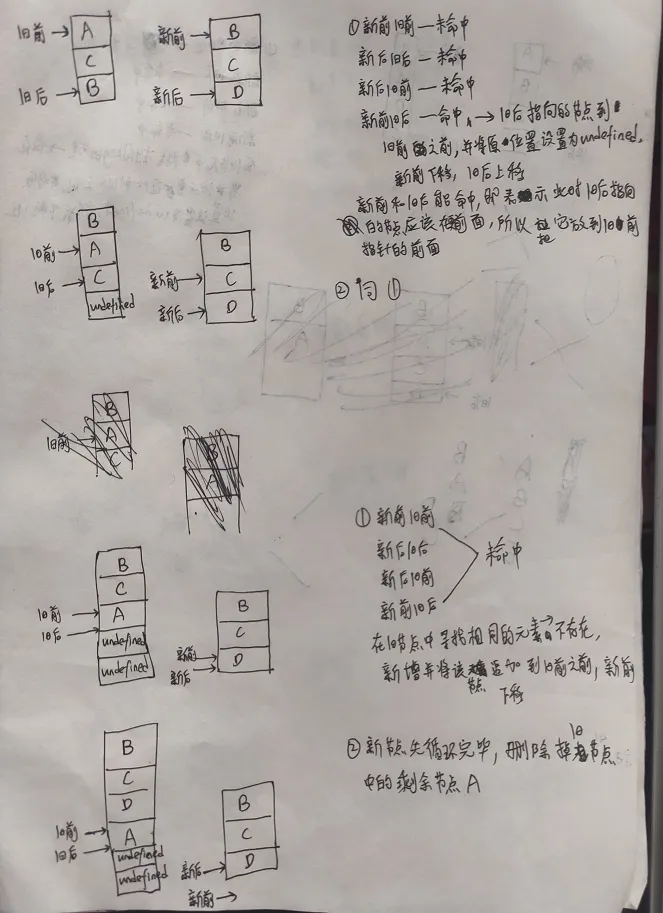 旧前→ A
C
旧后→ B
新前→ B
C
新后→ D
①新前旧前—未命中
新后旧后—未命中
新后旧前—未命中
新前旧后—命中→旧后指向的节点到
旧前之前,并将原位置设置为undefined,
新前下移,旧后上移
新前和旧后能命中,即表示此时旧后指向
的节点应该在前面,所以把它放到旧前
指针的前面
B
旧前→ A
旧后→ C
undefined
B
新前→ C
新后→ D
②同①
B
旧前→ A
C
B
A
①新前旧前
新后旧后
新后旧前
新前旧后
未命中
在旧节点中寻找相同的元素→不存在,
新增并将该节点追加到旧前之前,新前
下移
B
C
旧前→ A
旧后→
undefined
undefined
B
C
新前→ D
新后→
②新节点先循环完毕,删除掉旧节点
中的剩余节点A
B
C
D
旧前→ A
旧后→
undefined
undefined
B
C
新后→ D
新前→